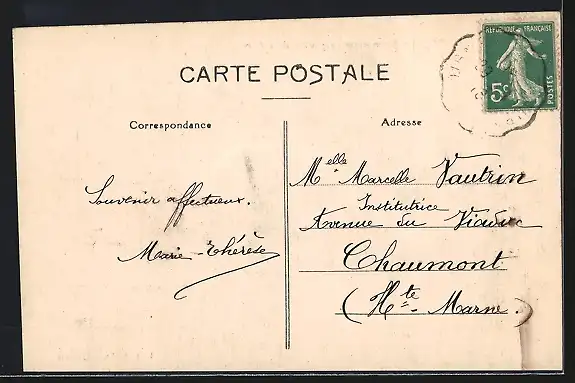 CARTE POSTALE
Correspondance
Souvenir affectueux.
Marie-Thérèse
Adresse
Melle Marcelle Vautrin
Institutrice
Avenue du Viaduc
Chaumont
(Hte-Marne.)
REPUBLIQUE FRANÇAISE
5c
POSTES